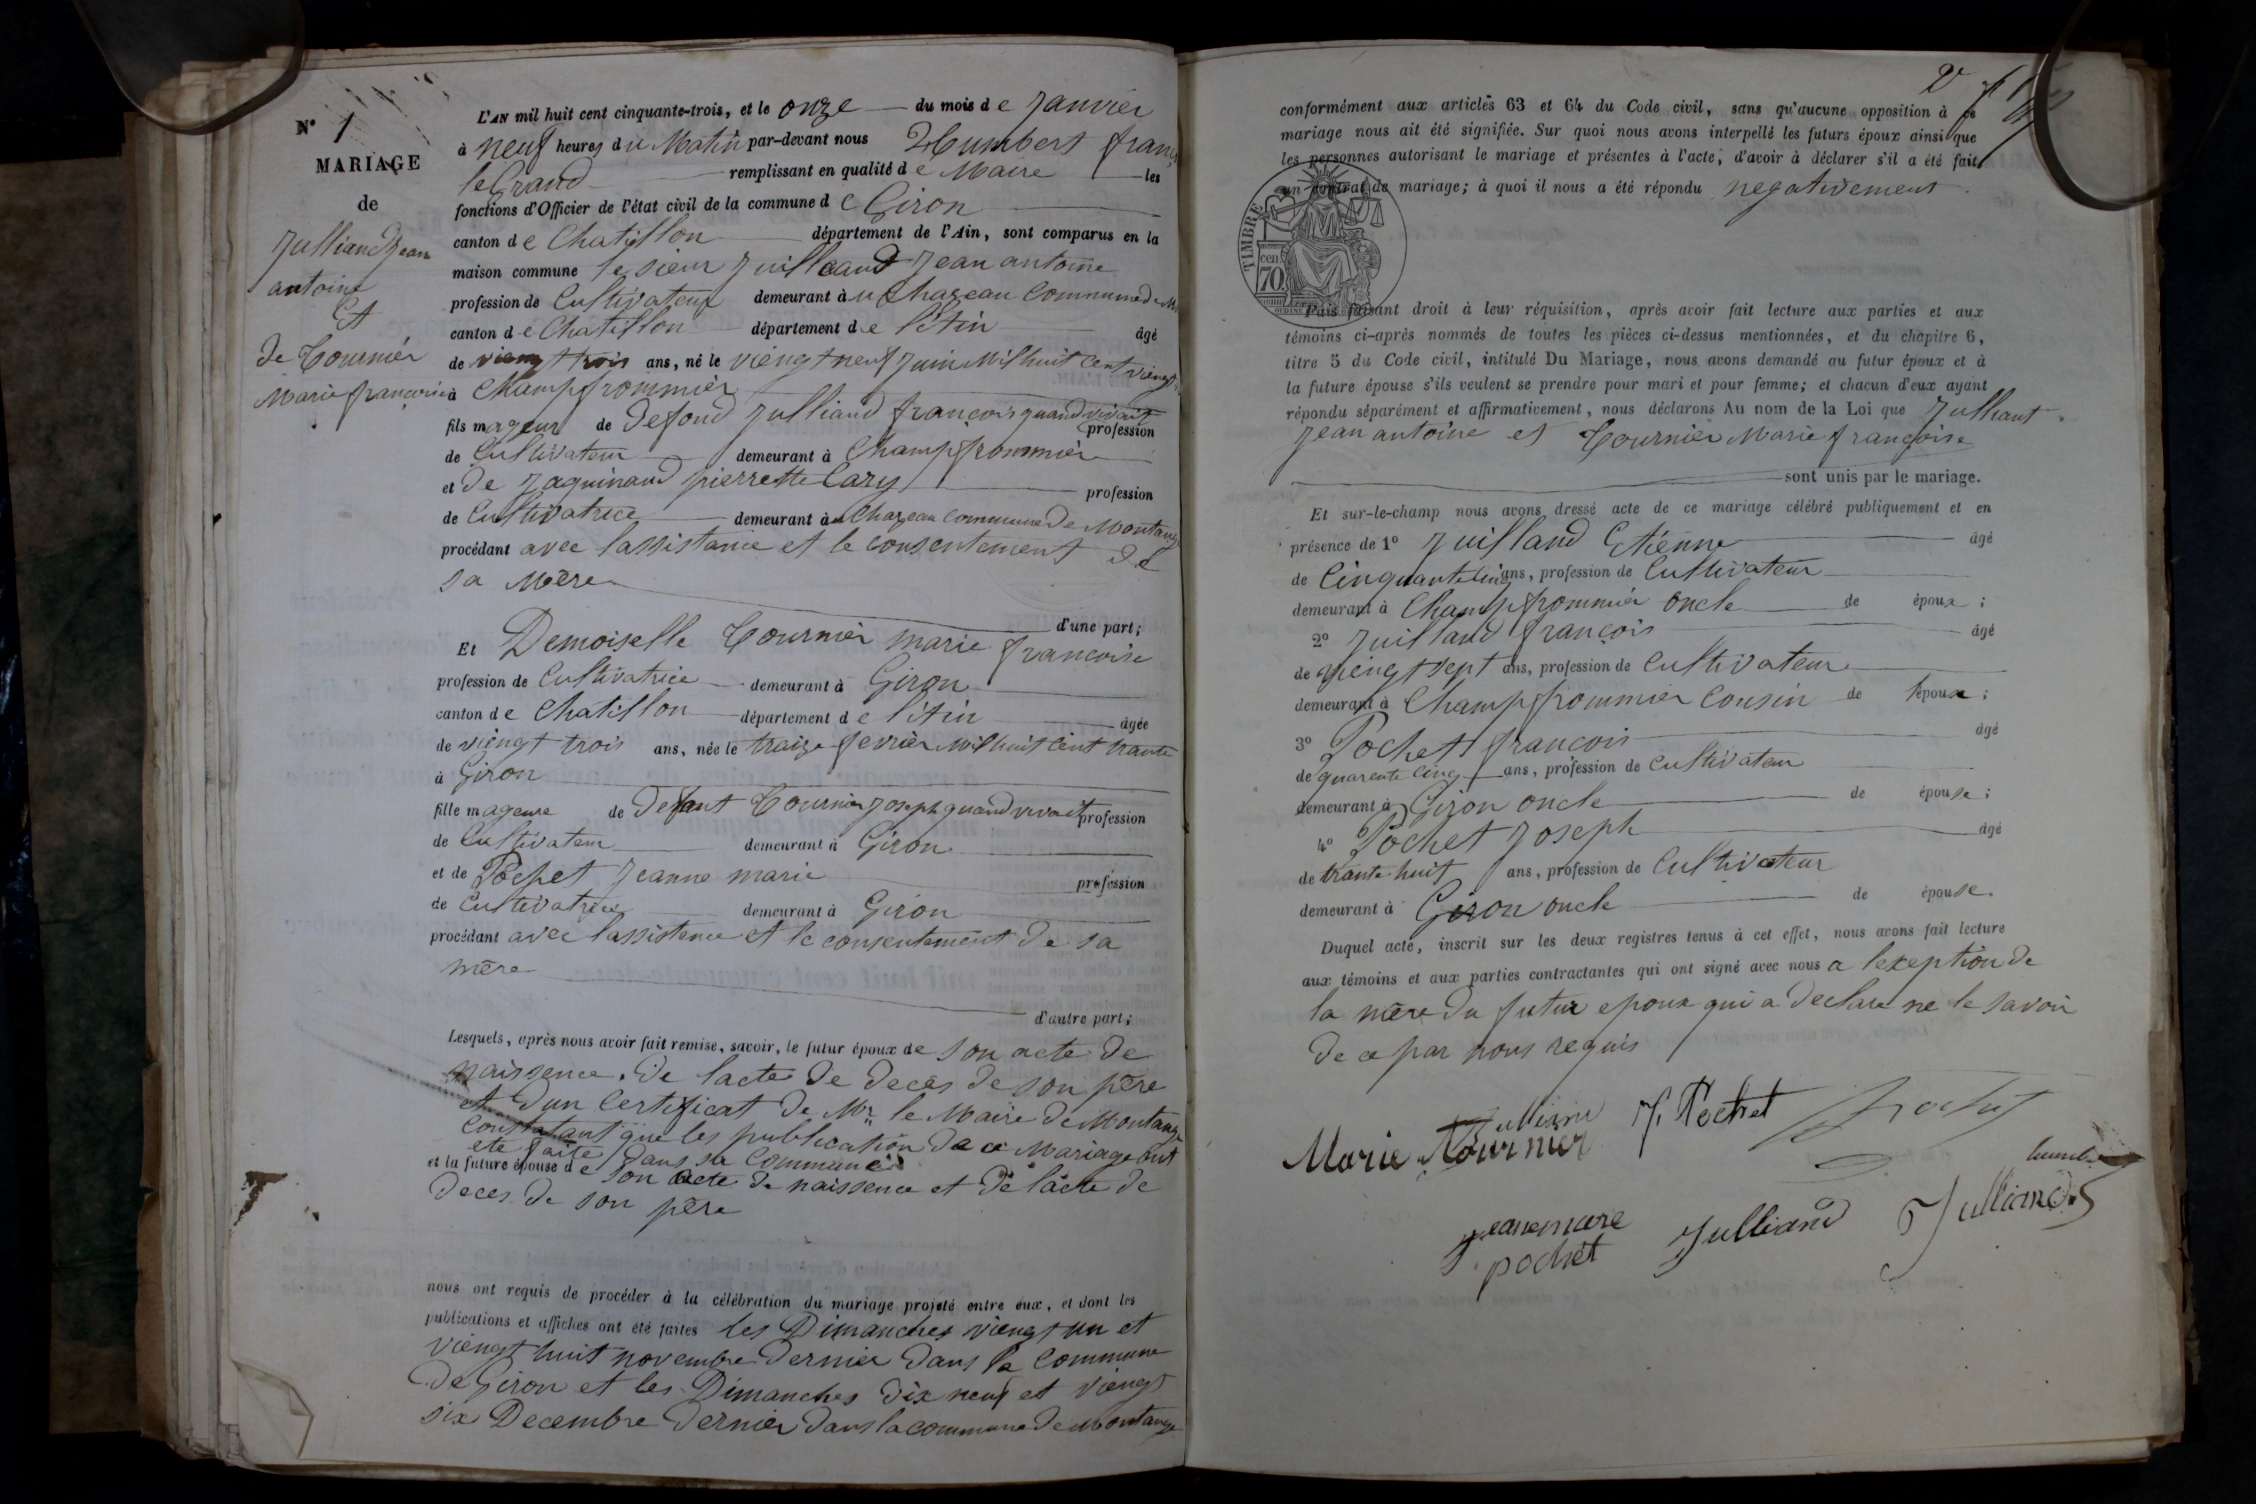 N° 1
MARIAGE
de
Julliand Jean
antoine
Et
de Tournier
Marie françoise
L'AN mil huit cent cinquante-trois, et le onze du mois de Janvier
à neuf heures du Matin par-devant nous Humbert franç
le Grand remplissant en qualité de Maire les
fonctions d'Officier de l'état civil de la commune de Giron
canton de Chatillon département de l'Ain, sont comparus en la
maison commune le sieur Juilleand Jean antoine
profession de Cultivateur demeurant à u Chazeau Commune de M
canton de Chatillon département de l'Ain âgé
de viengt trois ans, né le viengt neuf Juin Mil huit Cent viengt
à Champfrommier
fils mageur de Defond Julliand françois quand vivait profession
de Cultivateur demeurant à Champfrommier
et de Jaquinand pierrette Cary profession
de Cultivatrice demeurant à u Chazeau commune de Montang
procédant avec lassistance et le consentement de
sa Mère
d'une part;
Et Demoiselle Tournier marie francoise
profession de Cultivatrice demeurant à Giron
canton de Chatillon département de l'Ain âgée
de viengt trois ans, née le traize fevrier Mil huit Cent trante
à Giron
fille mageure de Defant Tournier Joseph quand vivait profession
de Cultivateur demeurant à Giron
et de Pochet Jeanne marie profession
de Cultivatrice demeurant à Giron
procédant avec lassistence et le consentement de sa
mère
d'autre part;
Lesquels, après nous avoir fait remise, savoir, le futur époux de son acte de
naissence. De lacte de decès de son père
et dun Certificat de Mr le Maire de Montange
Constatant que les publication de ce Mariage ont
ete faite dans sa Commune
et la future épouse de son acte de naissence et de lacte de
deces de son père
nous ont requis de procéder à la célébration du mariage projeté entre eux, et dont les
publications et affiches ont été faites les Dimanches viengt un et
viengt huit novembre dernier dans la Commune
de Giron et les Dimanches dix neuf et viengt
six Decembre dernier dans la commune de Montange
2
conformément aux articles 63 et 64 du Code civil, sans qu'aucune opposition à ce
mariage nous ait été signifiée. Sur quoi nous avons interpellé les futurs époux ainsi que
les personnes autorisant le mariage et présentes à l'acte, d'avoir à déclarer s'il a été fait
un contrat de mariage; à quoi il nous a été répondu negativement
TIMBRE
70
cen
Puis faisant droit à leur réquisition, après avoir fait lecture aux parties et aux
témoins ci-après nommés de toutes les pièces ci-dessus mentionnées, et du chapitre 6,
titre 5 du Code civil, intitulé Du Mariage, nous avons demandé au futur époux et à
la future épouse s'ils veulent se prendre pour mari et pour femme; et chacun d'eux ayant
répondu séparément et affirmativement, nous déclarons Au nom de la Loi que Julliant
Jean antoine et Tournier Marie françoise
sont unis par le mariage.
Et sur-le-champ nous avons dressé acte de ce mariage célébré publiquement et en
présence de 1° Juilland Etienne âgé
de Cinquante cinq ans, profession de Cultivateur
demeurant à Champfrommier oncle de époux;
2° Juilland françois âgé
de viengt sept ans, profession de Cultivateur
demeurant à Champfrommier Cousin de lépoux;
3° Pochet francois âgé
de quarente Cinq ans, profession de Cultivateur
demeurant à Giron oncle de épouse;
4° Pochet Joseph âgé
de trante huit ans, profession de Cultivateur
demeurant à Giron oncle de épouse.
Duquel acte, inscrit sur les deux registres tenus à cet effet, nous avons fait lecture
aux témoins et aux parties contractantes qui ont signé avec nous a lexeption de
la mère du futur epoux qui a declare ne le savoir
de ce par nous requis
Julliand J. Pochet Pochet
Marie Tournier
humbert
Jeanemarie
pochet Julliand Julliand